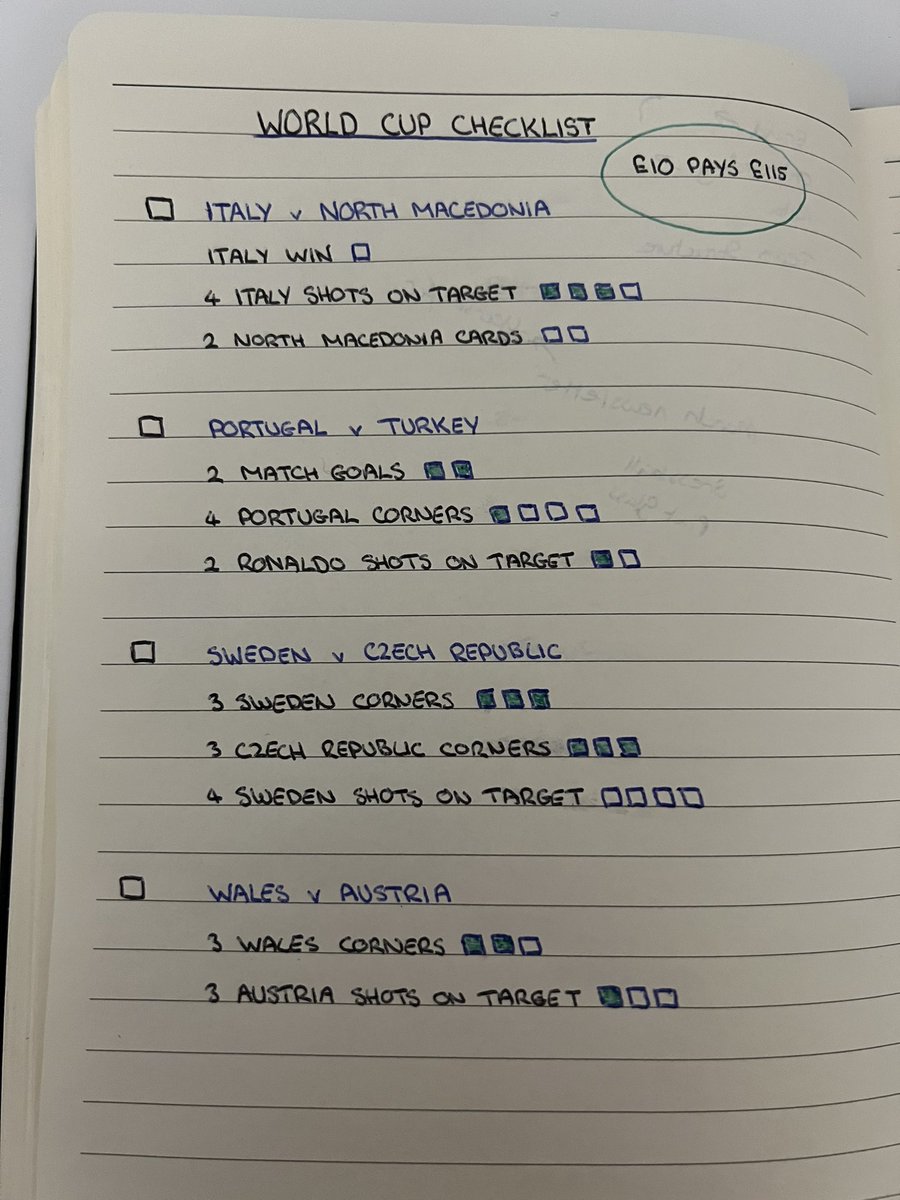 WORLD CUP CHECKLIST
£10 PAYS £115
ITALY v NORTH MACEDONIA
ITALY WIN
4 ITALY SHOTS ON TARGET
2 NORTH MACEDONIA CARDS
PORTUGAL v TURKEY
2 MATCH GOALS
4 PORTUGAL CORNERS
2 RONALDO SHOTS ON TARGET
SWEDEN v CZECH REPUBLIC
3 SWEDEN CORNERS
3 CZECH REPUBLIC CORNERS
4 SWEDEN SHOTS ON TARGET
WALES v AUSTRIA
3 WALES CORNERS
3 AUSTRIA SHOTS ON TARGET